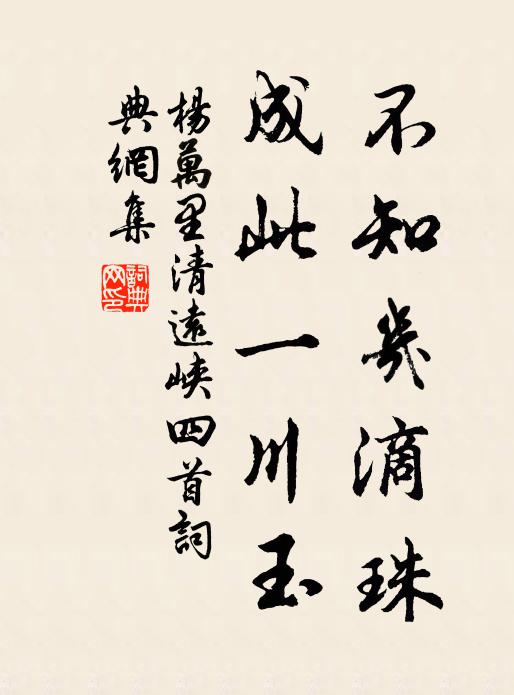 不知幾滴珠
成此一川玉
楊萬里清遠峽四首詞
典網集
詞典网印